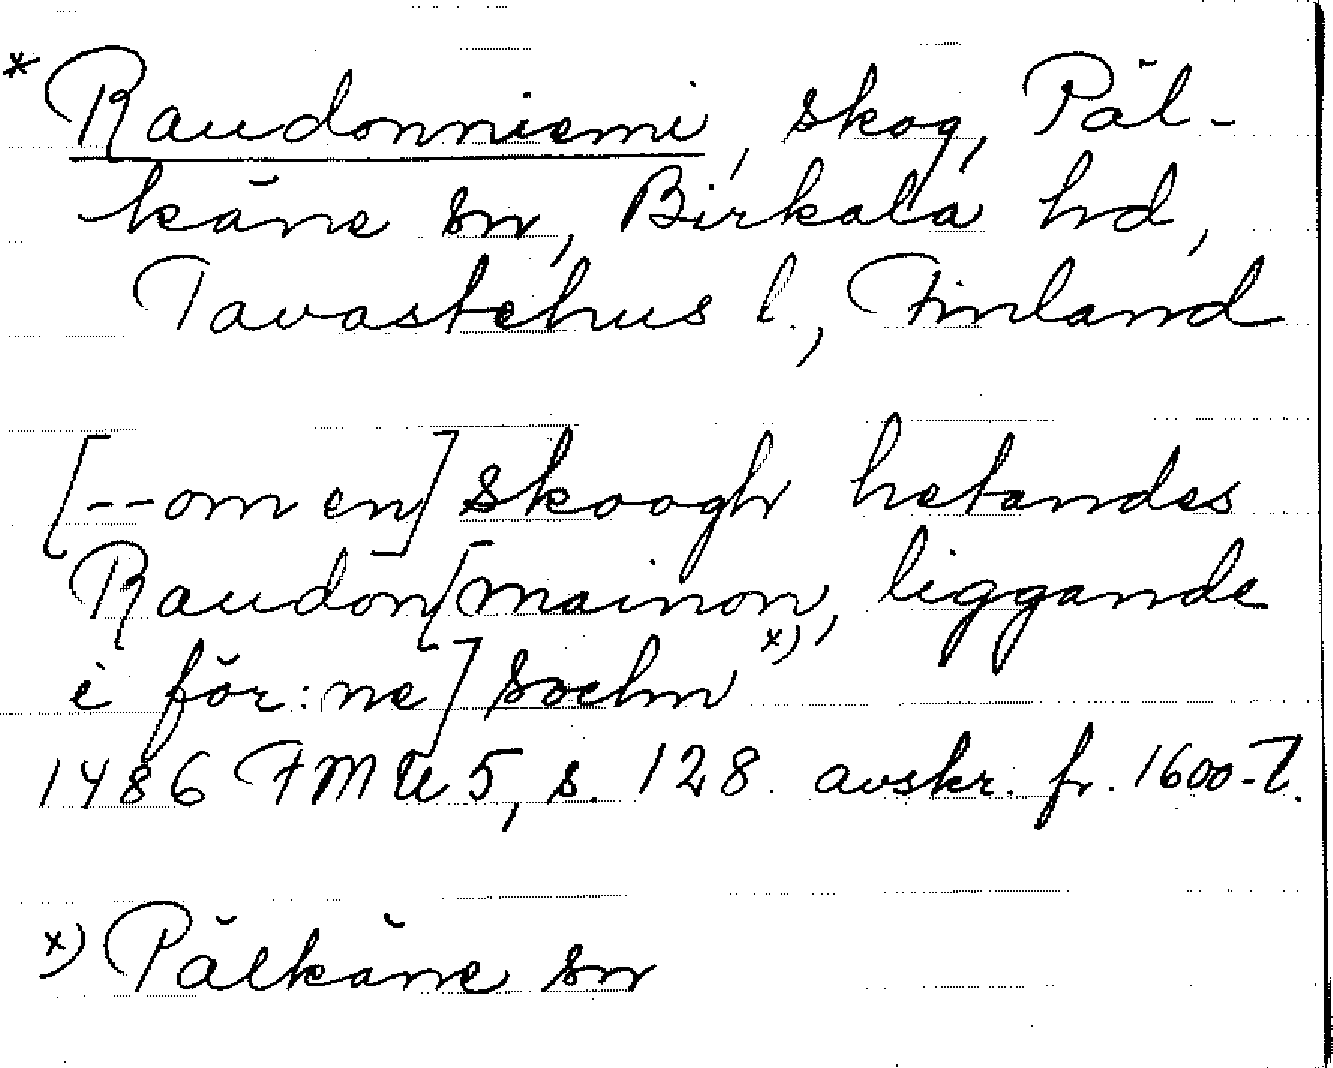 * Raudonniemi, skog, Päl-
käne sn, Birkala hd,
Tavastehus l., Finland
[--om en] skoogh hetandes
Raudon[mainon, liggande
i för:ne] sochn x)
1486 FMU 5, s. 128 avskr. fr. 1600-t.
x) Pälkäne sn